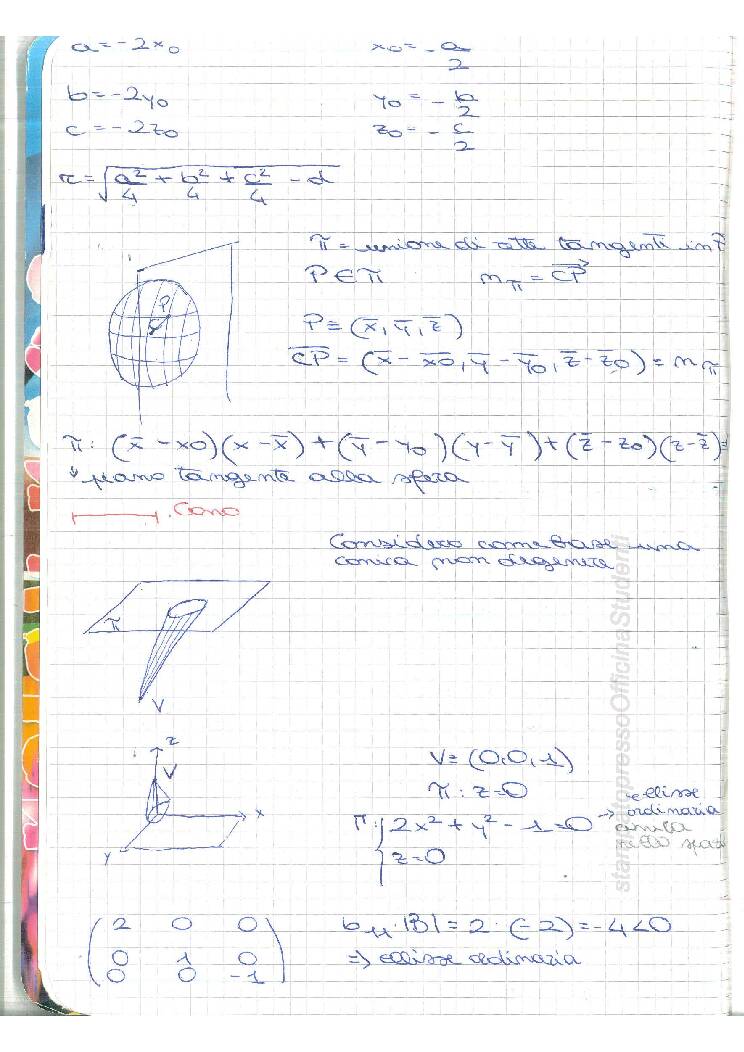 a = -2x₀    x₀ = -a/2
b = -2y₀    y₀ = -b/2
c = -2z₀    z₀ = -c/2
r = √(a²/4 + b²/4 + c²/4 - d)
π = unione di rette tangenti in P
P ∈ π    n_π = CP
P ≡ (x̄, ȳ, z̄)
CP = (x̄ - x̄₀, ȳ - ȳ₀, z̄ - z̄₀) = n_π
π: (x̄ - x₀)(x - x̄) + (ȳ - y₀)(y - ȳ) + (z̄ - z₀)(z - z̄) =
↓ piano tangente alla sfera
P
C
. Cono
Considero come base una
conica non degenere
π
V
z
V
x
y
V ≡ (0,0,1)
π: z = 0
Γ: { 2x² + y² - 1 = 0 → ellisse
ordinaria
z = 0
2 0 0
0 1 0
0 0 -1
b₁₁·|B| = 2·(-2) = -4 < 0
⇒ ellisse ordinaria
stampatopressoOfficinaStudenti